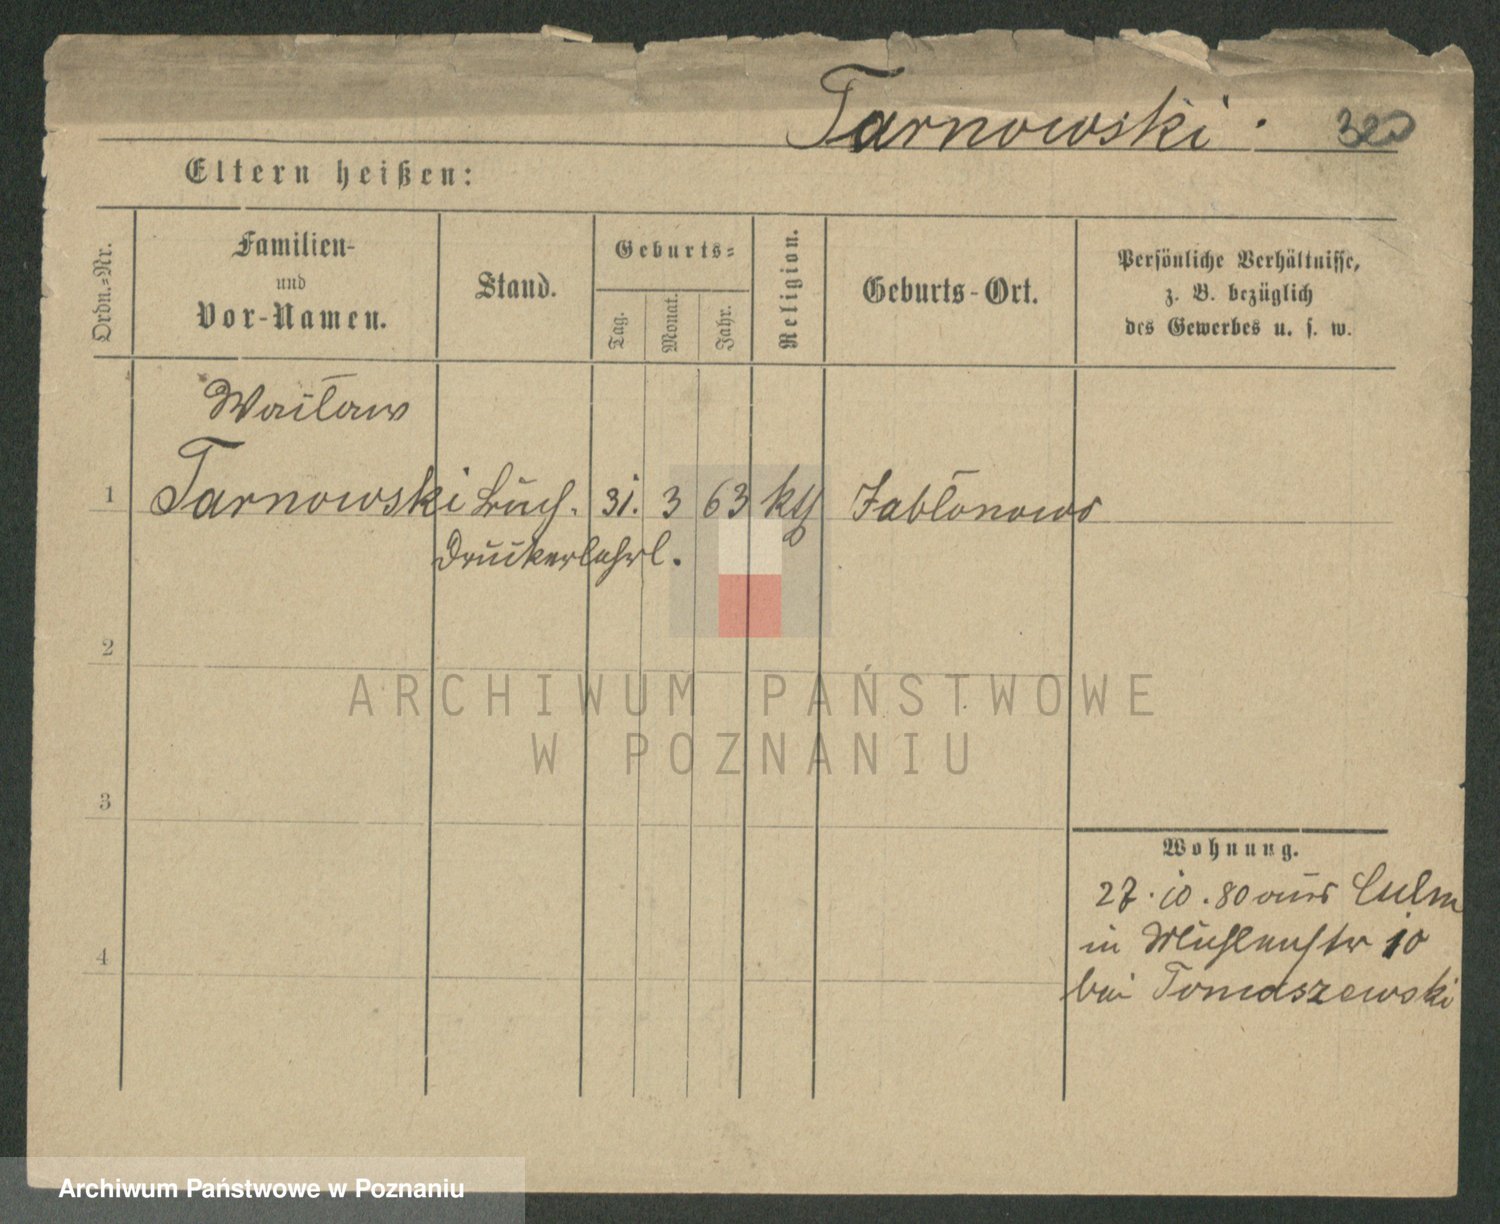 Tarnowski.
Eltern heißen:
Ordn.-Nr.
Familien-
und
Vor-Namen.
Stand.
Geburts-
Tag.
Monat.
Jahr.
Religion.
Geburts-Ort.
Persönliche Verhältnisse,
z. B. bezüglich
des Gewerbes u. s. w.
Wacław
1 Tarnowski Buch. 31. 3 63 kth Jabłonowo
Druckerlehrl.
2
ARCHIWUM PAŃSTWOWE
W POZNANIU
3
Wohnung.
27.10.80 aus Culm
in Mühlenstr 10
4
bei Tomaszewski
Archiwum Państwowe w Poznaniu